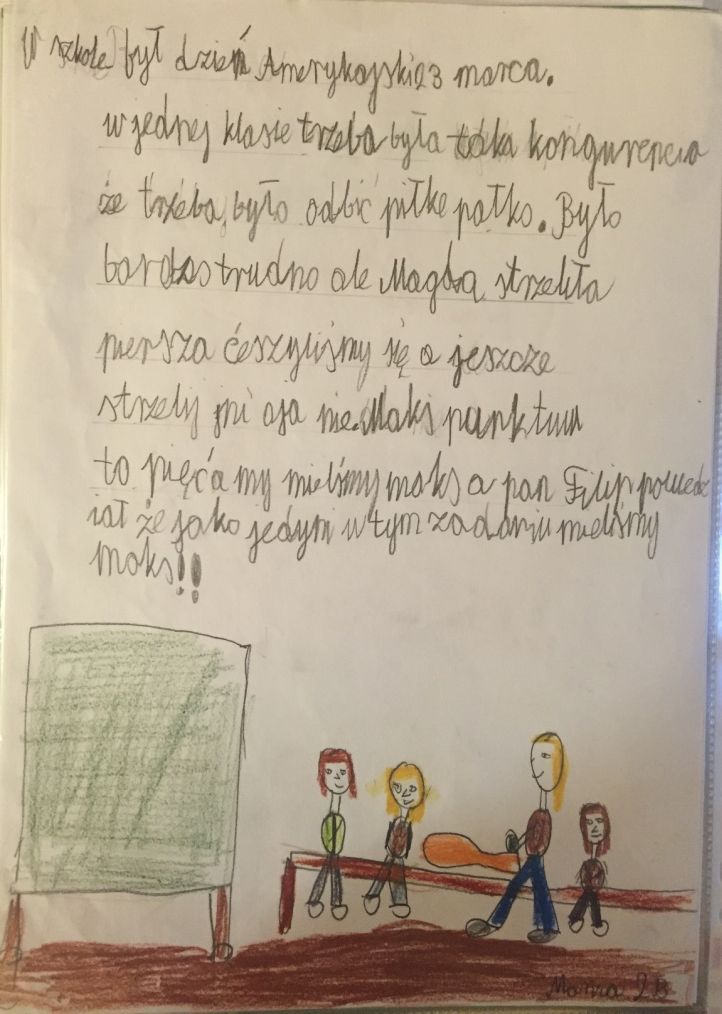 W szkole był dzień Amerykajski 23 marca.
w jednej klasie trzeba była taka kongurencia
że trzeba było odbić piłke patko. Było
bardzo trudno ale Magda strzeliła
piersza ćeszyliśmy się a jeszcze
strzelij jni a ja nie. Maks punktuw
to pięć a my mieliśmy maks a pan Filip powiedz
iał że jako jedyni w tym zadaniu mieliśmy
maks!!
2B